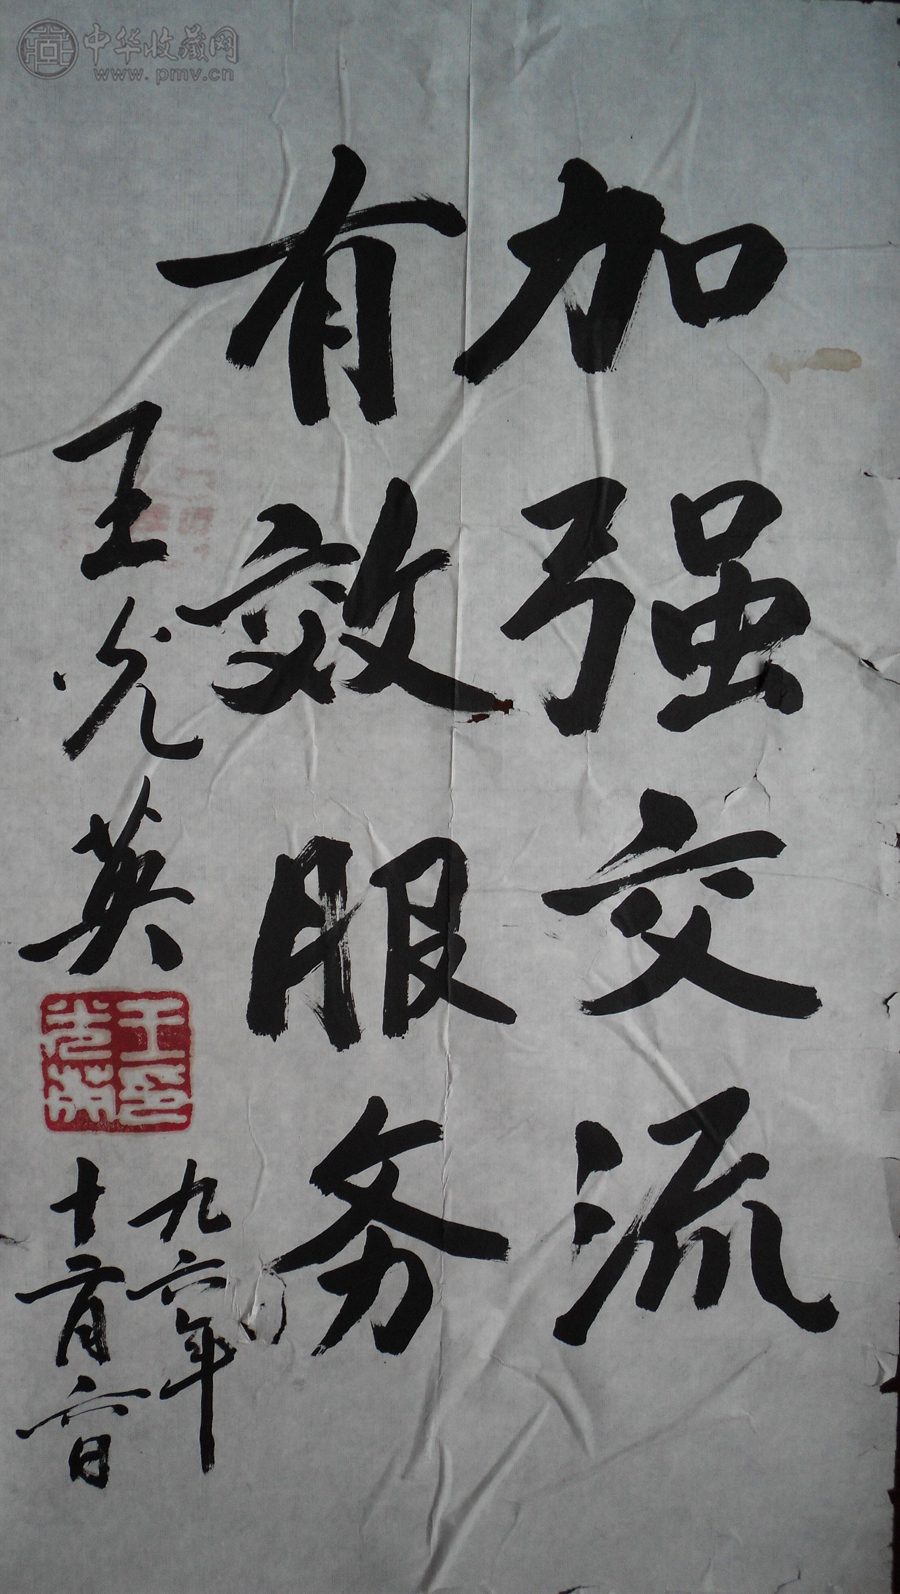 加强交流
有效服务
王光英
王印光英
九六年
十二月六日
中华收藏网
www.pmv.cn